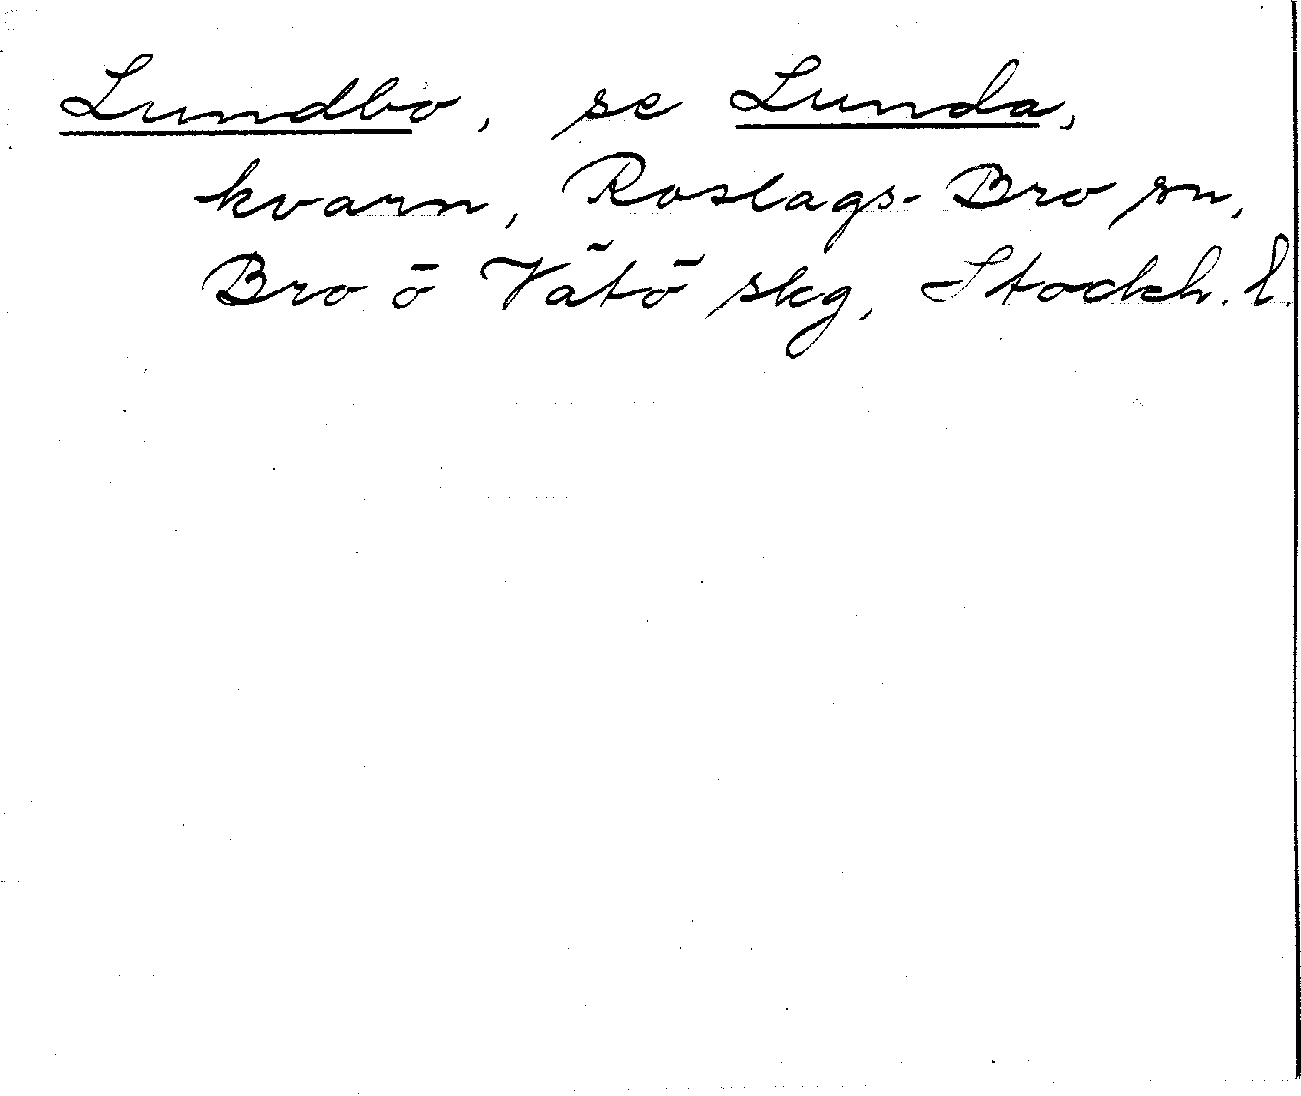 Lundbo, se Lunda,
kvarn, Roslags-Bro sn,
Bro o Vätö skg, Stockh. l.